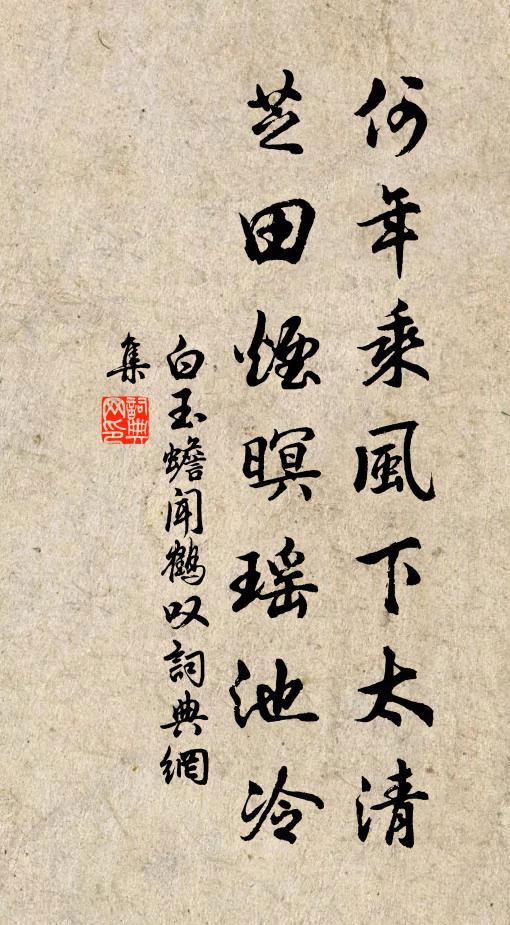 何年乘風下太清
芝田煙暝瑶池冷
白玉蟾闻鶴叹詞典網
集
詞典網印